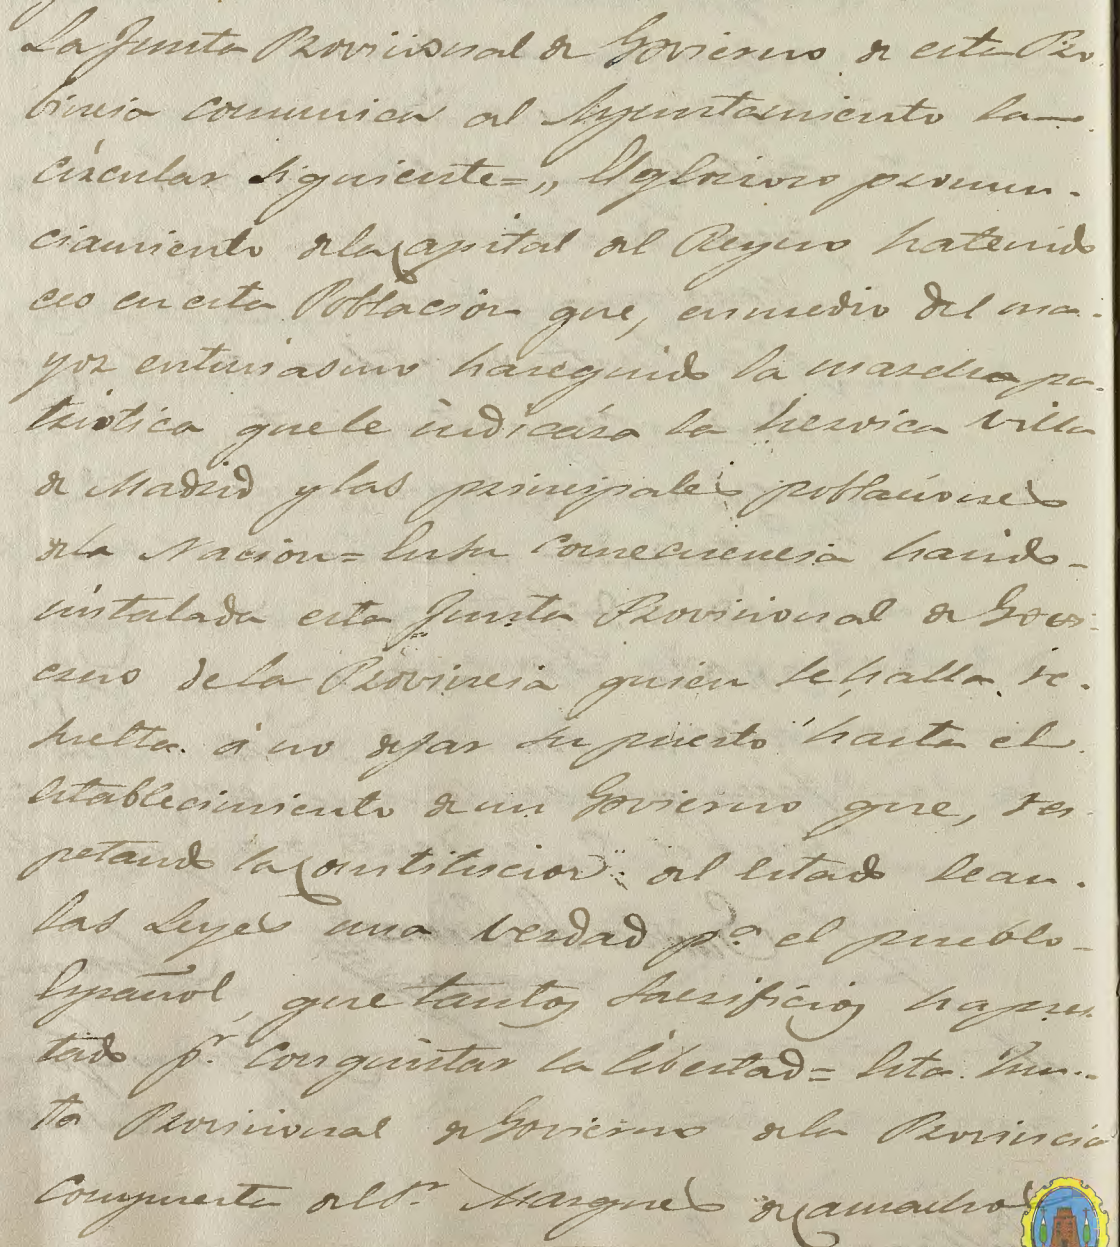 La Junta Provisional de Govierno de esta Pro
bincia comunica al Ayuntamiento la
circular siguiente=,, El glorioso pronun-
ciamiento de la Capital del Reyno ha tenido
eco en esta Poblacion que, enmedio del ma-
yor entusiasmo ha seguido la marcha pa-
triotica que le indicára la heroica villa
de Madrid y las principales poblaciones
de la Nacion= En su consecuencia ha sido
instalada esta Junta Provisional de Govi-
erno de la Provincia quien se halla re-
suelta á no dejar su puesto hasta el
establecimiento de un Govierno que, res
petando la Constitucion del Estado sean
las Leyes una verdad pa. el pueblo
Español, que tantos sacrificios ha pres
tado pr. conquistar la libertad= Esta Jun-
ta Provisional de Govierno de la Provincia
compuesta del Sr. Marques de Camachos